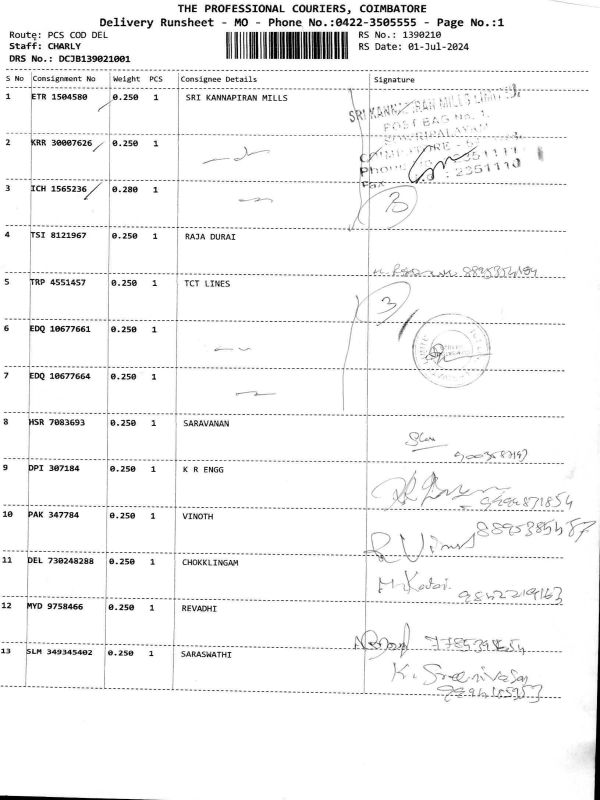 THE PROFESSIONAL COURIERS, COIMBATORE
Delivery Runsheet - MO - Phone No.:0422-3505555 - Page No.:1
Route: PCS COD DEL RS No.: 1390210
Staff: CHARLY RS Date: 01-Jul-2024
DRS No.: DCJB139021001
S No Consignment No Weight PCS Consignee Details Signature
1 ETR 1504580 0.250 1 SRI KANNAPIRAN MILLS
SRI KANNAPIRAN MILLS LIMITED,
POST BAG No. 1,
2 KRR 30007626 0.250 1
SOWRIPALAYAM
Phone
3 ICH 1565236 0.280 1
Fax : 2351110
3
4 TSI 8121967 0.250 1 RAJA DURAI
5 TRP 4551457 0.250 1 TCT LINES
3
6 EDQ 10677661 0.250 1
7 EDQ 10677664 0.250 1
8 HSR 7083693 0.250 1 SARAVANAN
9 DPI 307184 0.250 1 K R ENGG
10 PAK 347784 0.250 1 VINOTH
11 DEL 730248288 0.250 1 CHOKKLINGAM
12 MYD 9758466 0.250 1 REVADHI
13 SLM 349345402 0.250 1 SARASWATHI
K. Sreenivasan